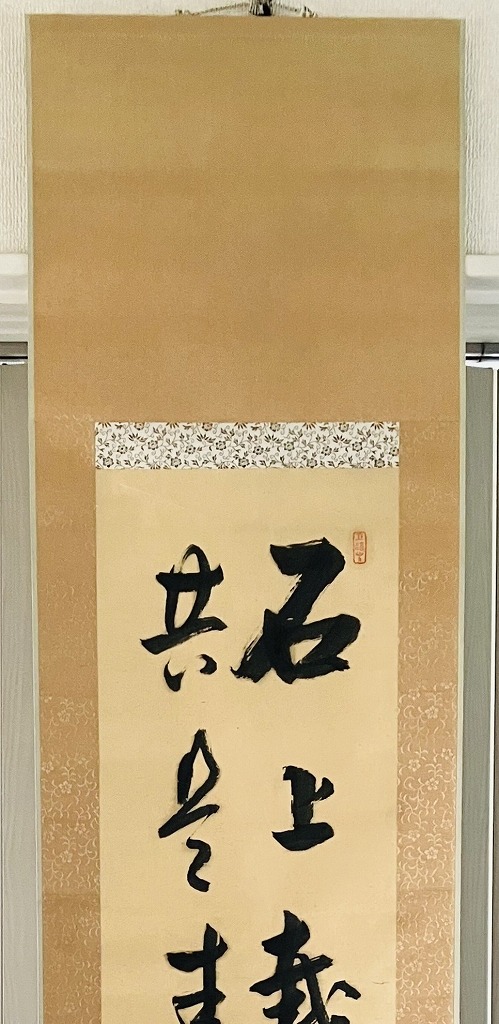 石上栽
共是